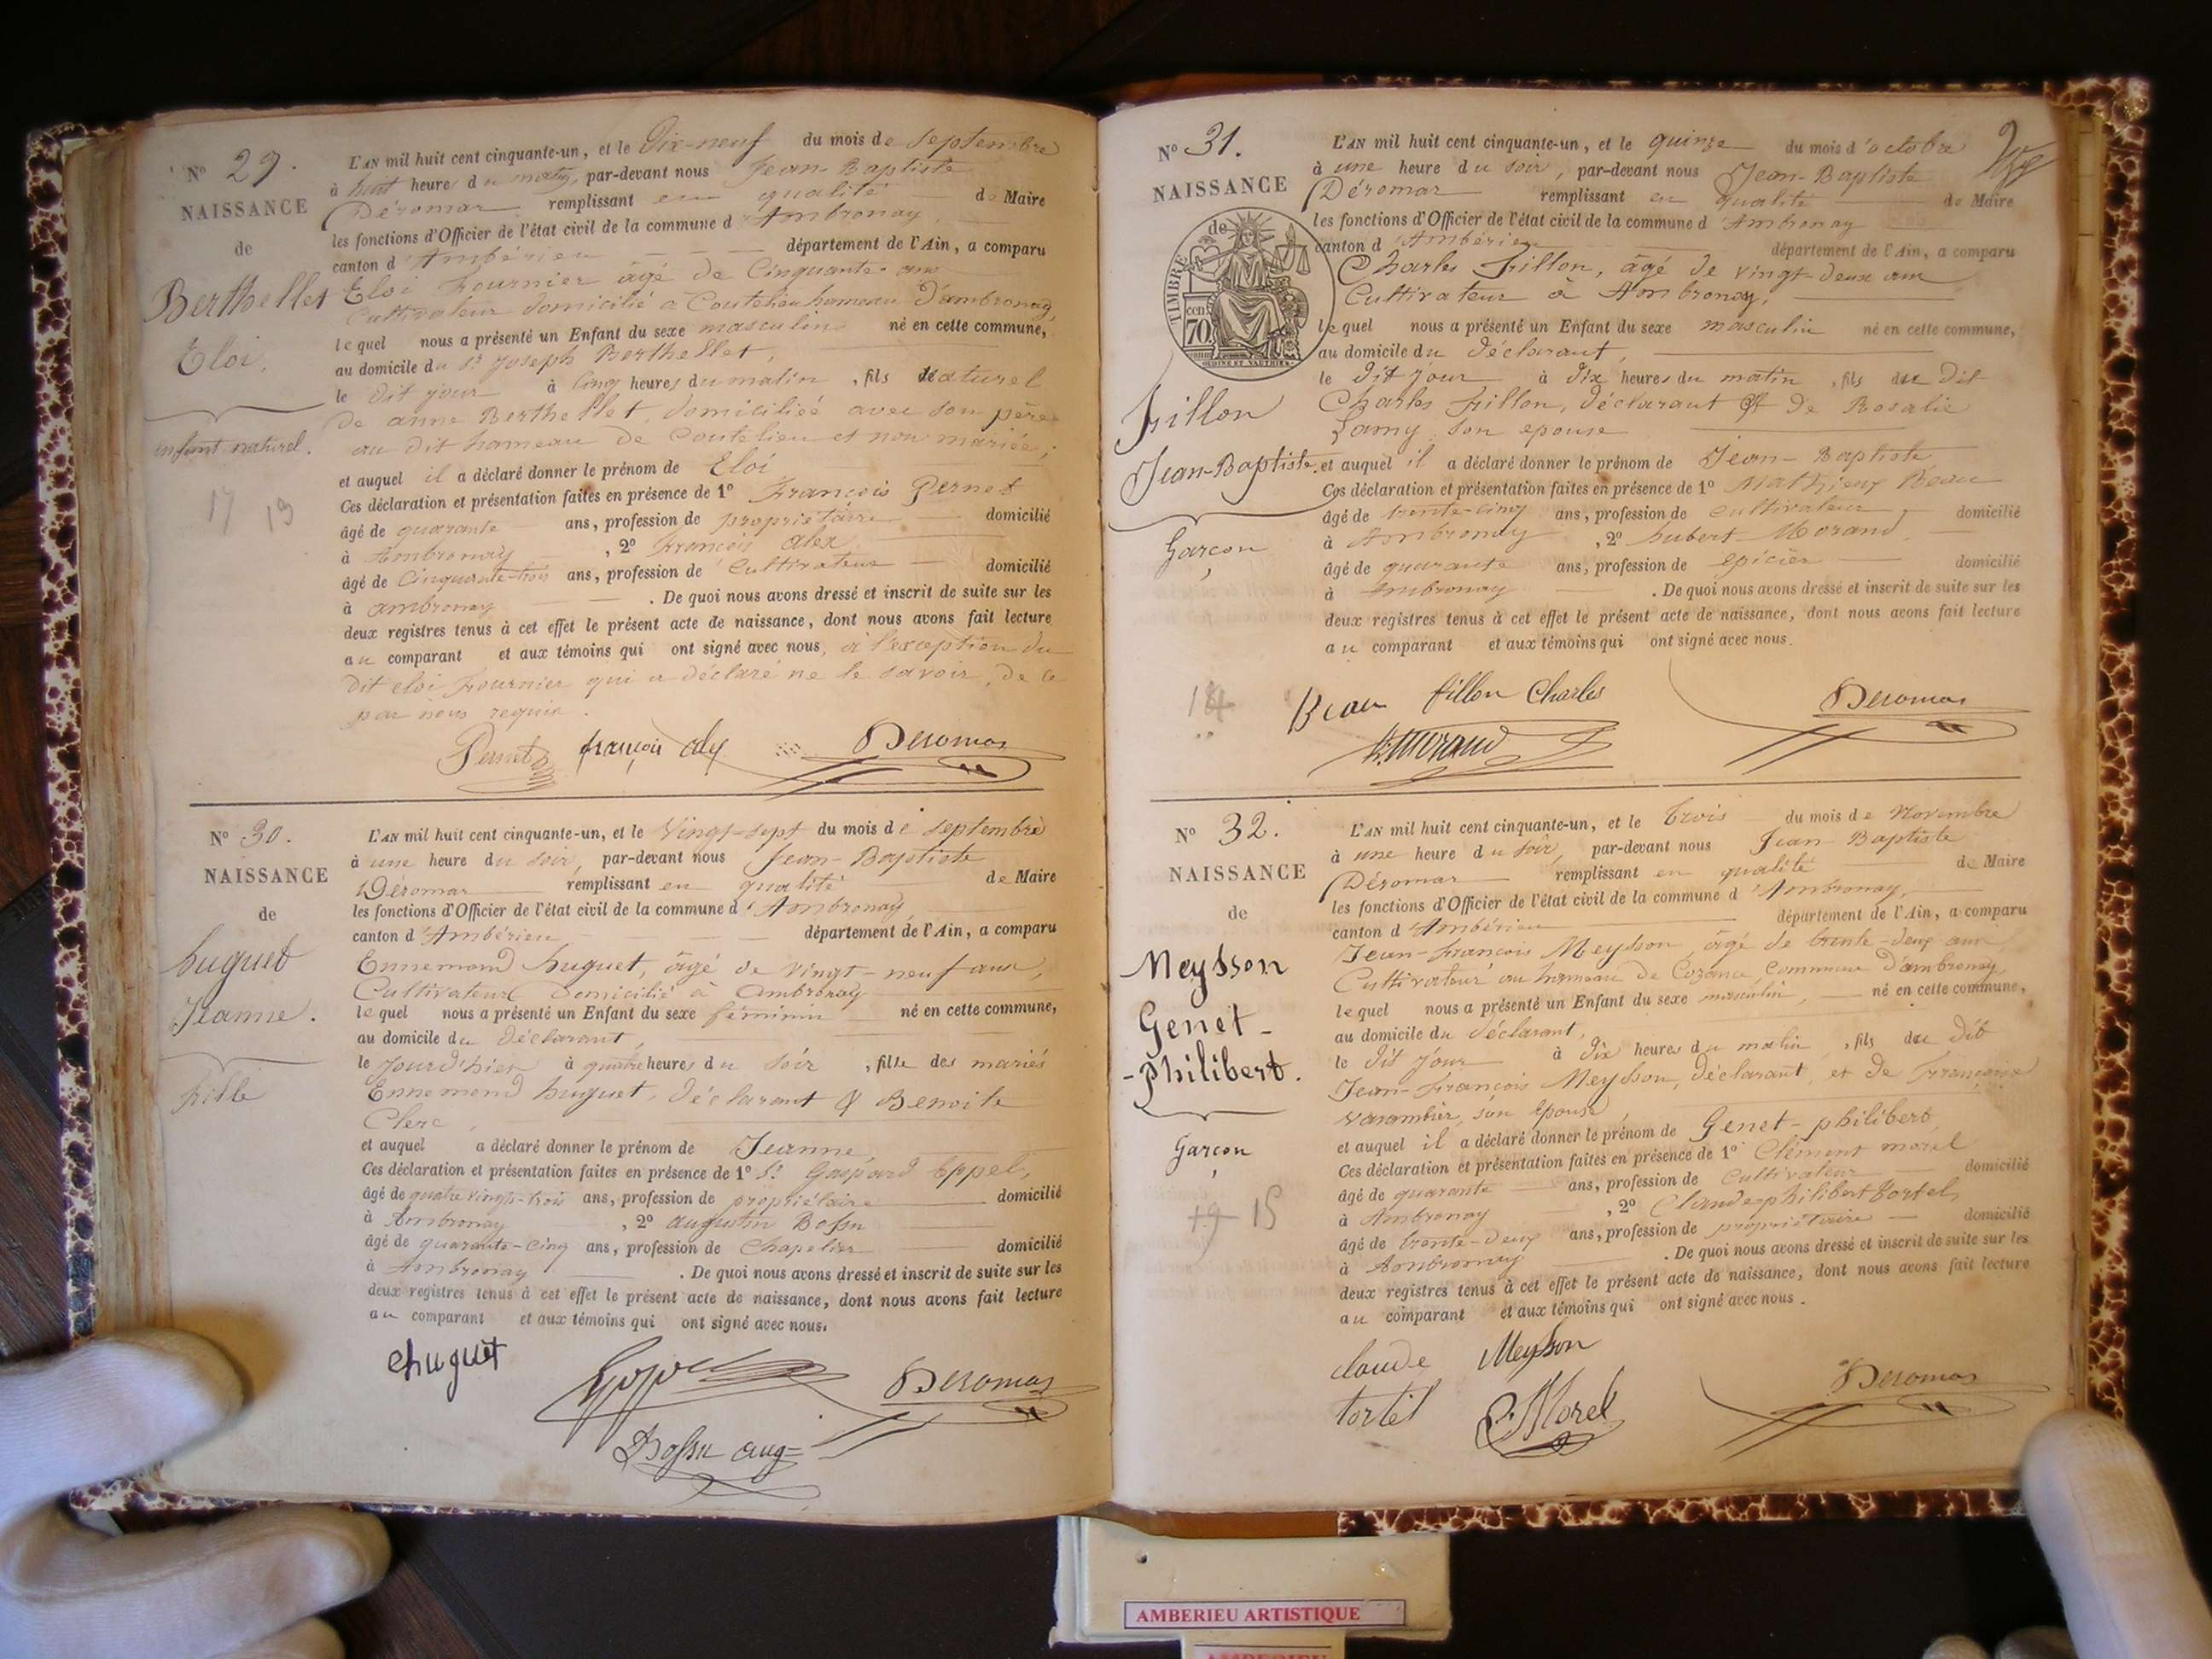 N° 29.
NAISSANCE
de
Berthellet
Eloi.
enfant naturel.
17 13
L'AN mil huit cent cinquante-un, et le Dix-neuf du mois de Septembre
à huit heures du matin, par-devant nous Jean-Baptiste
Déromas remplissant en qualité de Maire
les fonctions d'Officier de l'état civil de la commune d'Ambronay
canton d'Ambérieu département de l'Ain, a comparu
Eloi Fournier âgé de Cinquante ans
Cultivateur domicilié a Coutelieu hameau d'ambronay,
lequel nous a présenté un Enfant du sexe masculin né en cette commune,
au domicile du Sr Joseph Berthellet,
le dit jour à Cinq heures du matin, fils Naturel
de anne Berthellet, domiciliée avec son père
au dit hameau de Coutelieu et non mariée;
et auquel il a déclaré donner le prénom de Eloi
Ces déclaration et présentation faites en présence de 1° François Pernet
âgé de quarante ans, profession de propriétaire domicilié
à Ambronay, 2° François Alex
âgé de Cinquante-trois ans, profession de Cultivateur domicilié
à ambronay. De quoi nous avons dressé et inscrit de suite sur les
deux registres tenus à cet effet le présent acte de naissance, dont nous avons fait lecture
au comparant et aux témoins qui ont signé avec nous, à l'exception du
dit eloi Fournier qui a déclaré ne le savoir, de ce
par nous requis.
Pernet françois alex Deromas
N° 30.
NAISSANCE
de
huguet
Jeanne.
fille
L'AN mil huit cent cinquante-un, et le Vingt-sept du mois de Septembre
à une heure du soir, par-devant nous Jean-Baptiste
Déromas remplissant en qualité de Maire
les fonctions d'Officier de l'état civil de la commune d'Ambronay
canton d'Ambérieu département de l'Ain, a comparu
Ennemond huguet, âgé de vingt-neuf ans,
Cultivateur domicilié à ambronay
lequel nous a présenté un Enfant du sexe féminin né en cette commune,
au domicile du Déclarant,
le jour d'hier à quatre heures du soir, fille des mariés
Ennemond huguet, déclarant & Benoite
Clerc,
et auquel a déclaré donner le prénom de Jeanne,
Ces déclaration et présentation faites en présence de 1° Sr Gaspard Eppel,
âgé de quatre vingt-trois ans, profession de propriétaire domicilié
à Ambronay, 2° augustin Bossu
âgé de quarante-cinq ans, profession de Chapelier domicilié
à Ambronay. De quoi nous avons dressé et inscrit de suite sur les
deux registres tenus à cet effet le présent acte de naissance, dont nous avons fait lecture
au comparant et aux témoins qui ont signé avec nous.
huguet Deromas
Bossu aug=
N° 31.
NAISSANCE
de
TIMBRE
70 cen
Fillon
Jean-Baptiste.
Garçon
L'AN mil huit cent cinquante-un, et le quinze du mois d'octobre
à une heure du soir, par-devant nous Jean-Baptiste
Déromas remplissant en qualité de Maire
les fonctions d'Officier de l'état civil de la commune d'Ambronay
canton d'Ambérieu département de l'Ain, a comparu
Charles Fillon, âgé de vingt-deux ans
Cultivateur à Ambronay,
lequel nous a présenté un Enfant du sexe masculin né en cette commune,
au domicile du déclarant,
le dit jour à dix heures du matin, fils du dit
Charles Fillon, déclarant & de Rosalie
Lamy son epouse
et auquel il a déclaré donner le prénom de Jean-Baptiste
Ces déclaration et présentation faites en présence de 1° Mathieux Beau
âgé de trente-cinq ans, profession de Cultivateur domicilié
à Ambronay, 2° hubert Morand,
âgé de quarante ans, profession de epicier domicilié
à Ambronay. De quoi nous avons dressé et inscrit de suite sur les
deux registres tenus à cet effet le présent acte de naissance, dont nous avons fait lecture
au comparant et aux témoins qui ont signé avec nous.
Beau fillon Charles Deromas
h. Morand
N° 32.
NAISSANCE
de
Meysson
Genet-
-philibert.
Garçon
19 15
L'AN mil huit cent cinquante-un, et le trois du mois de Novembre
à une heure du soir, par-devant nous Jean Baptiste
Déromas remplissant en qualité de Maire
les fonctions d'Officier de l'état civil de la commune d'Ambronay,
canton d'Ambérieu département de l'Ain, a comparu
Jean-François Meysson, âgé de trente-deux ans
Cultivateur au hameau de Cozance, Commune d'ambronay,
lequel nous a présenté un Enfant du sexe masculin, né en cette commune,
au domicile du déclarant,
le dit jour à dix heures du matin, fils du dit
Jean-François Meysson, déclarant, et de Françoise
Varambier, son épouse
et auquel il a déclaré donner le prénom de Genet-philibert,
Ces déclaration et présentation faites en présence de 1° Clément morel
âgé de quarante ans, profession de Cultivateur domicilié
à Ambronay, 2° Claude philibert tortel,
âgé de trente-deux ans, profession de propriétaire domicilié
à Ambronay. De quoi nous avons dressé et inscrit de suite sur les
deux registres tenus à cet effet le présent acte de naissance, dont nous avons fait lecture
au comparant et aux témoins qui ont signé avec nous.
claude Meysson
tortel C. Morel Deromas
AMBERIEU ARTISTIQUE
AMBERIEU